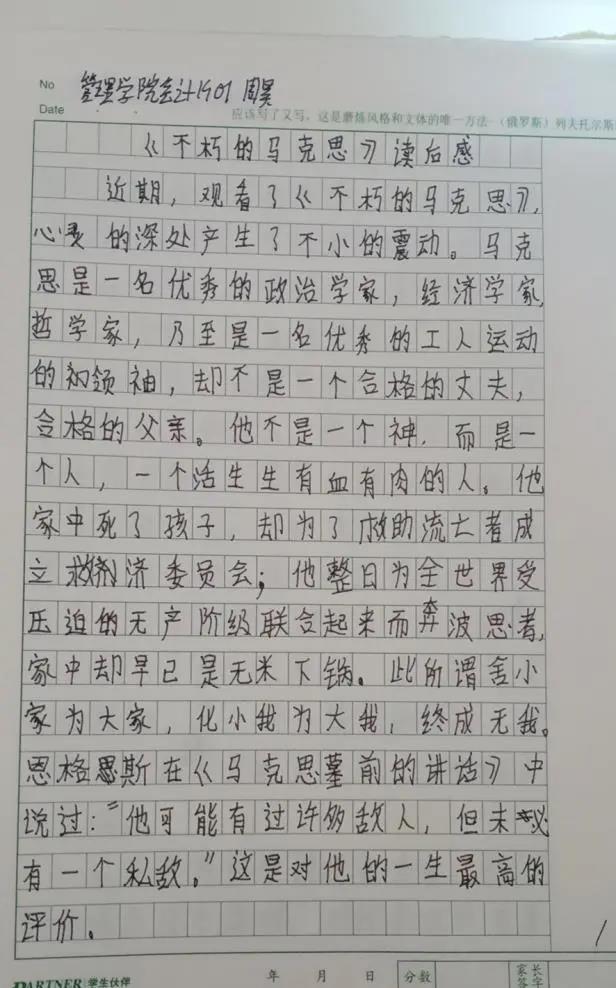 No 管理学院会计1901 周昊
Date 应该写了又写,这是磨炼风格和文体的唯一方法—(俄罗斯)列夫托尔斯
《不朽的马克思》读后感
近期,观看了《不朽的马克思》,
心灵的深处产生了不小的震动。马克
思是一名优秀的政治学家,经济学家,
哲学家,乃至是一名优秀的工人运动
的领袖,却不是一个合格的丈夫,
合格的父亲。他不是一个神,而是一
个人,一个活生生有血有肉的人。他
家中死了孩子,却为了救助流亡者成
立救济委员会;他整日为全世界受
压迫的无产阶级联合起来而奔波思考,
家中却早已是无米下锅。此所谓舍小
家为大家,化小我为大我,终成无我。
恩格斯在《马克思墓前的讲话》中
说过:“他可能有过许多敌人,但未必
有一个私敌。”这是对他的一生最高的
评价。
1
PARTNER 学生伙伴 年 月 日 分数 家长签字